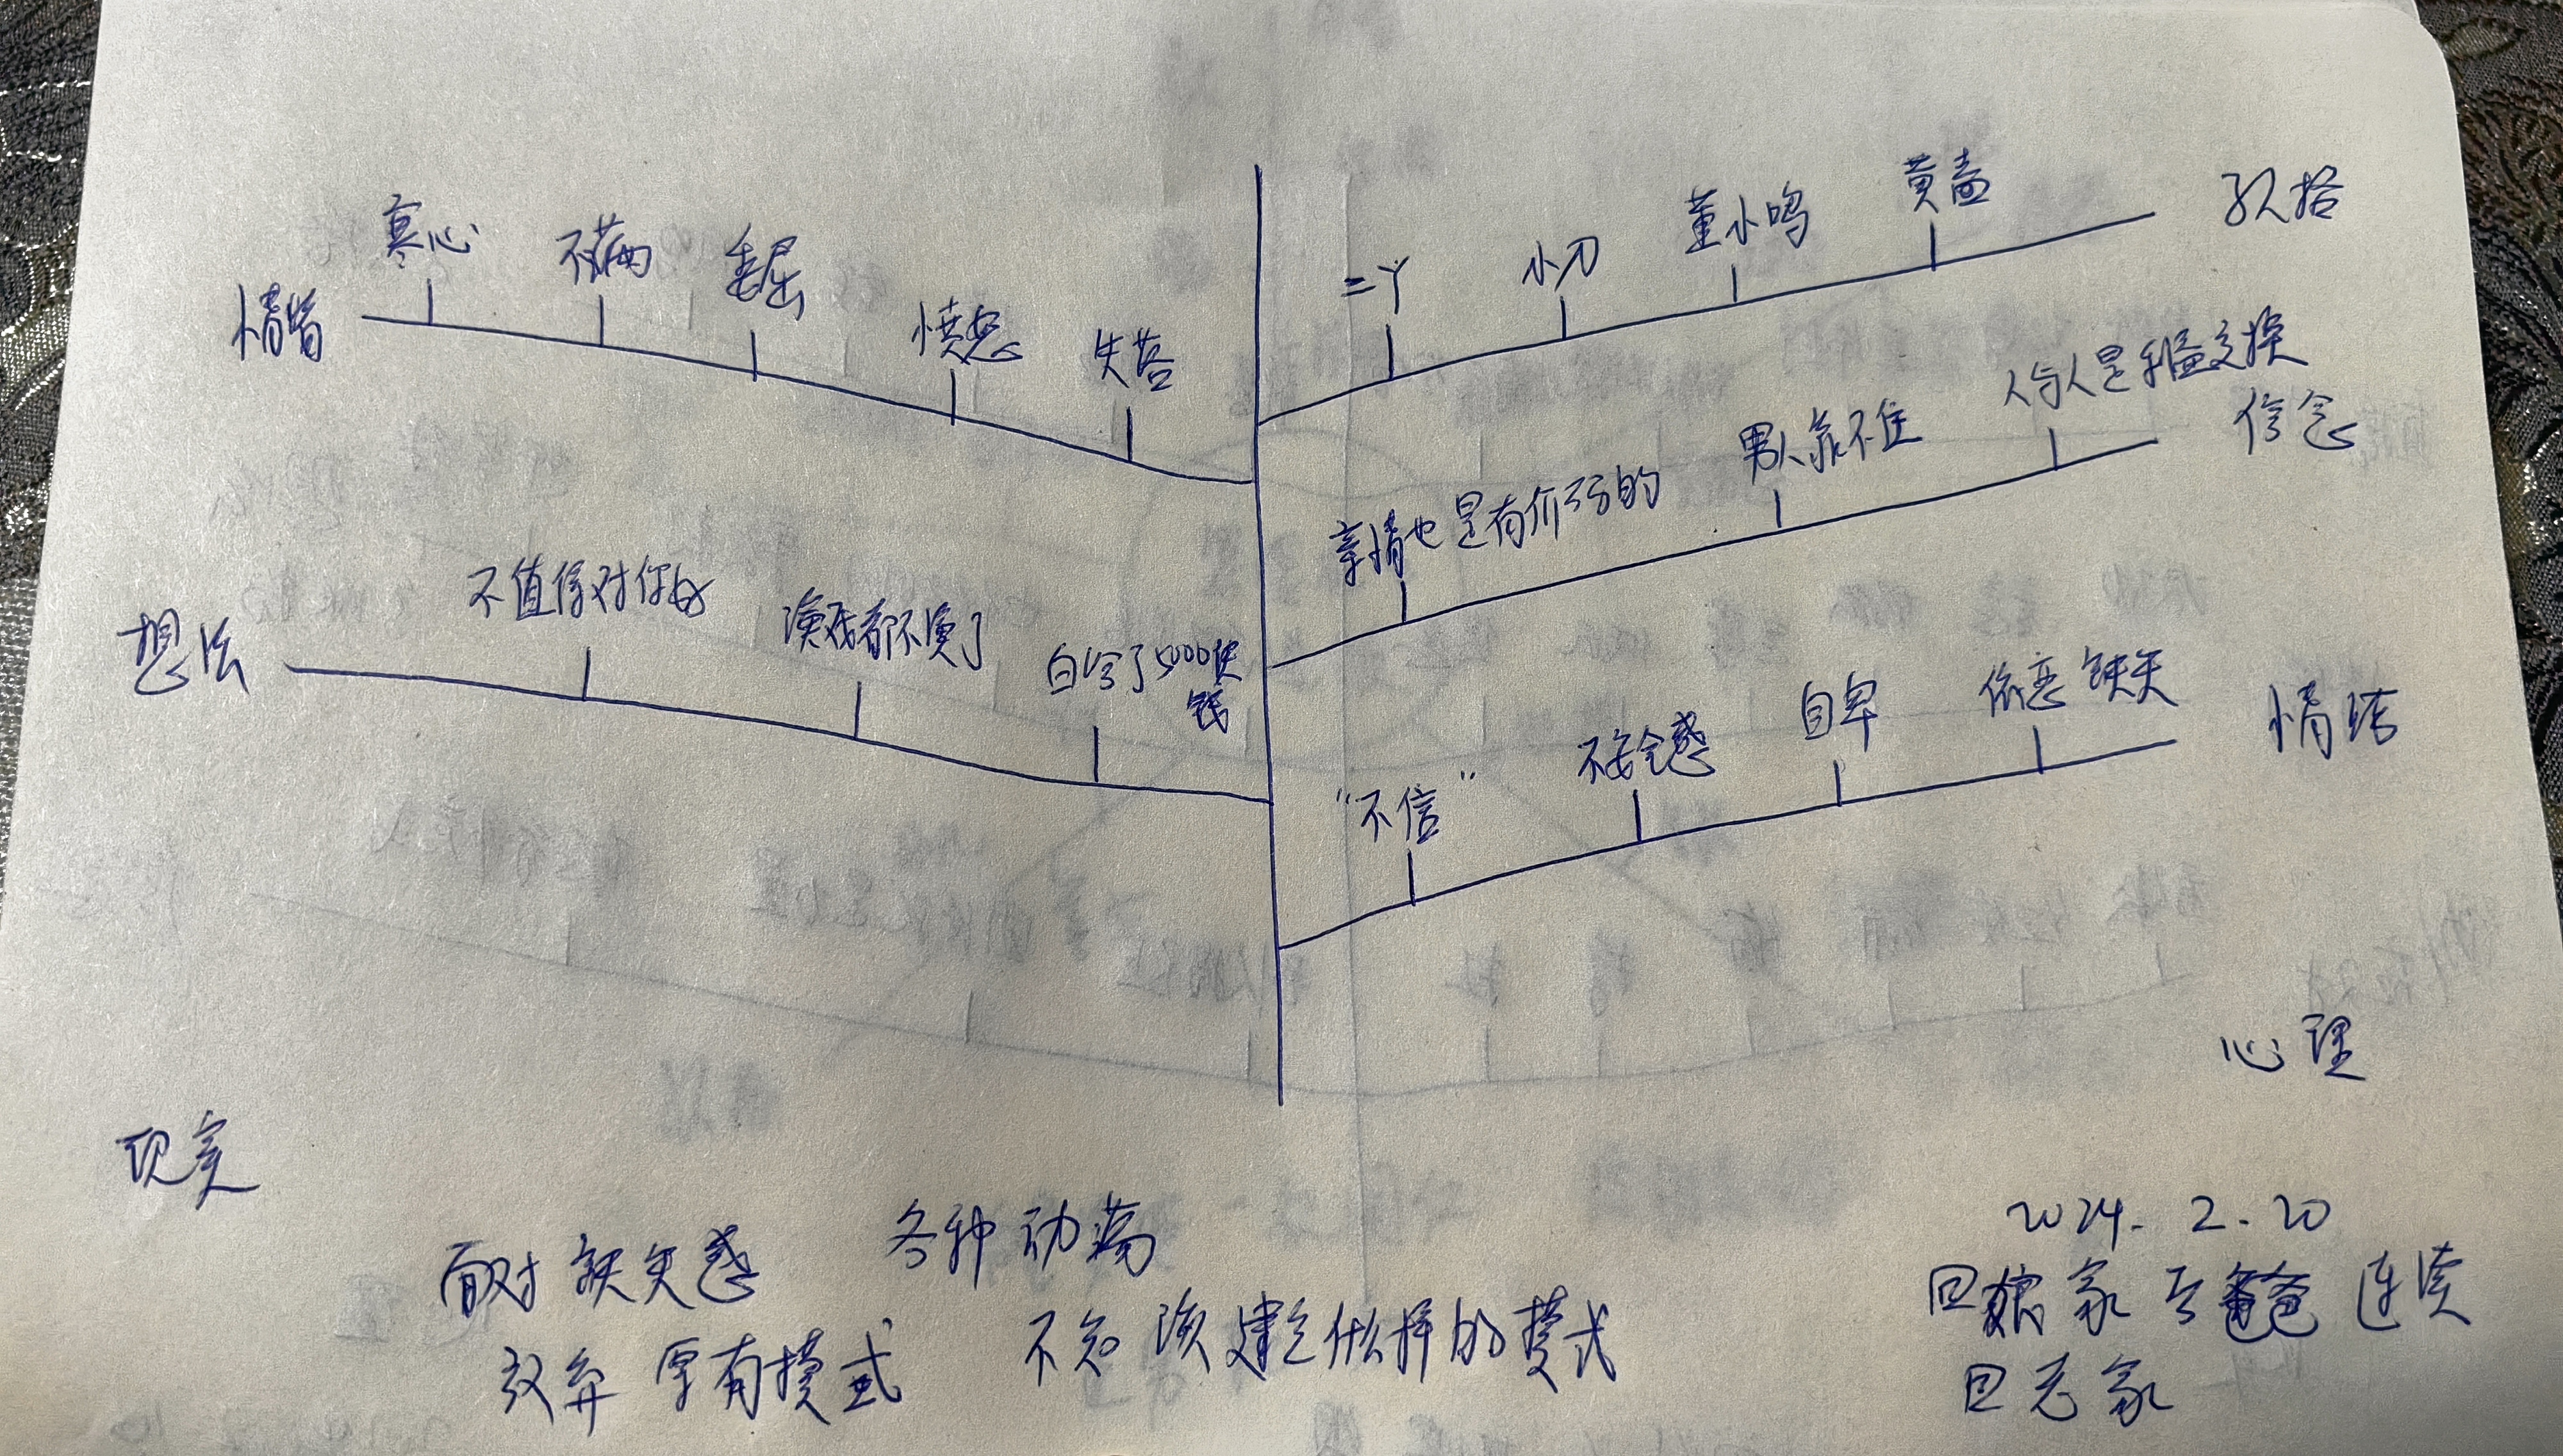 情绪 寒心 不满 委屈 愤怒 失落
想法 不值得对你好 演戏都不演了 白给了5000块钱
二丫 小刀 董小鸣 黄 
亲情也是有价码的 男人靠不住 人与人是利益交换 信念
“不信” 不安全感 自卑 依恋缺失 情结
现实
心理
面对缺失感 各种动荡
放弃 原有模式 不知 该建立什么样的模式
2024. 2. 20
回娘家 与爸爸 连续
回老家